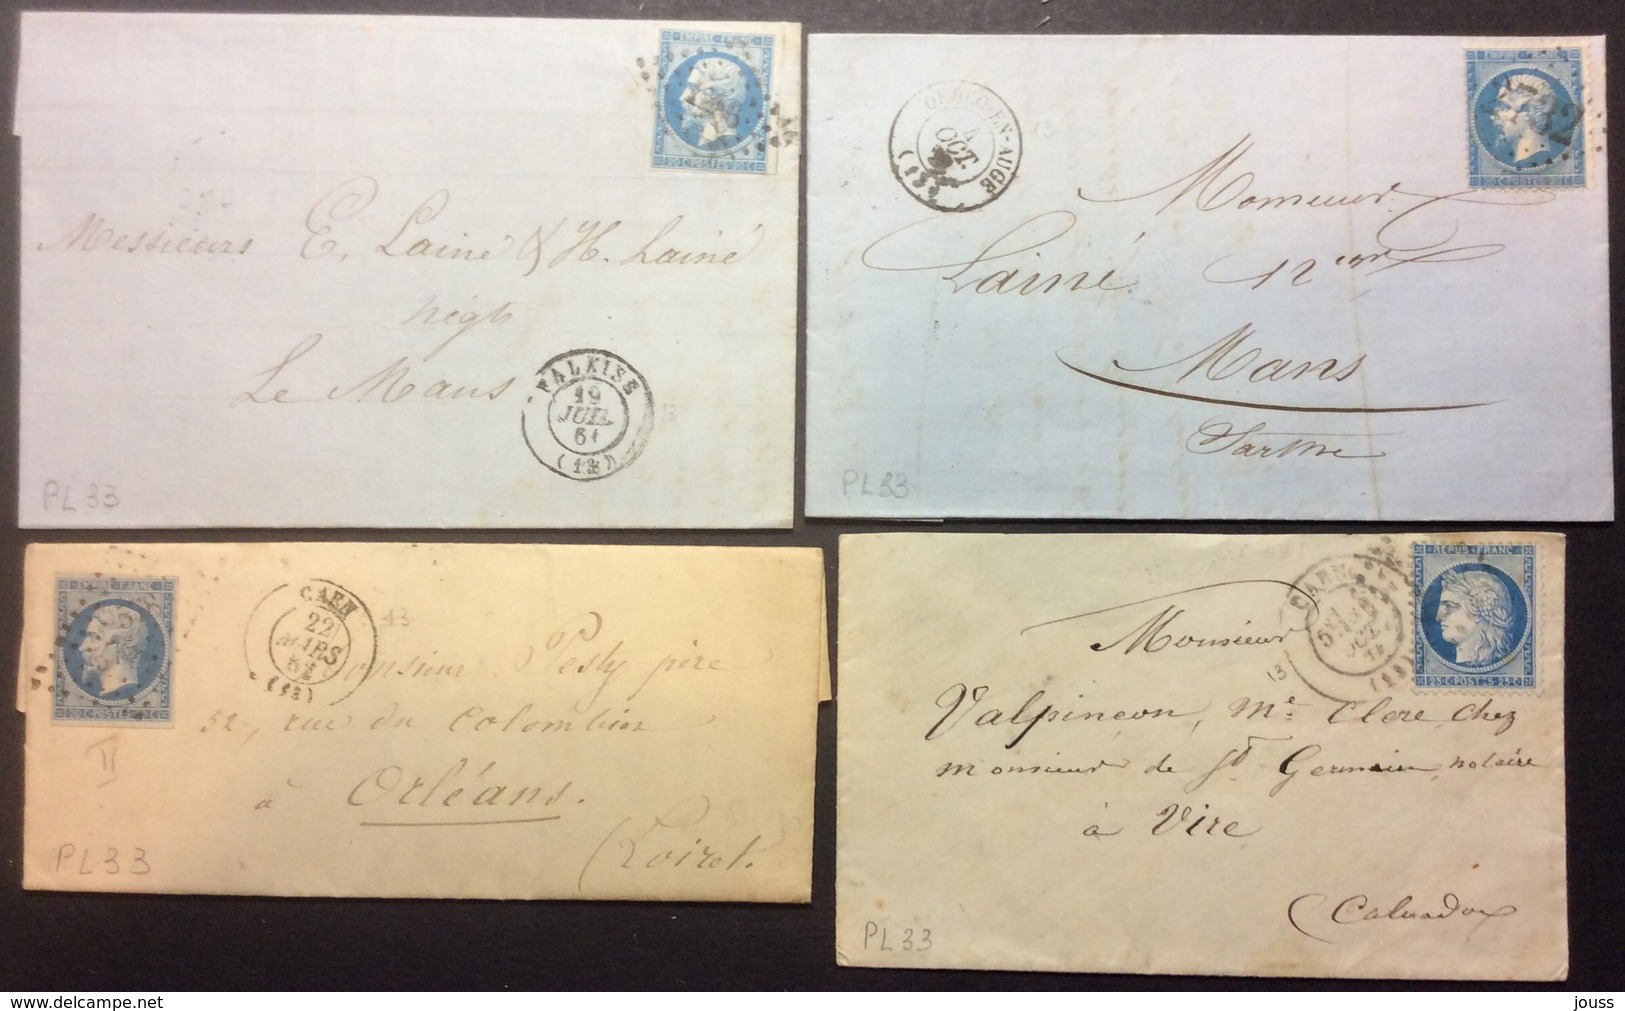 EMPIRE FRANC
20 C POSTES 20 C
Messieurs E. Lainé & H. Lainé
négts
Le Mans.
FALAISE
19
JUIL.
61
(13)
13
PL 33
EMPIRE FRANC
20 C POSTES 20 C
2732
EN-AUGE
4
OCT.
(13)
13
Monsieur
Lainé
Mans
Sarthe
PL 33
EMPIRE FRANC
20 C POSTES 20 C
CAEN
22
MARS
62
(13)
13
Monsieur Pesty père
52, rue du Colombier
à Orléans.
(Loiret.
II
PL 33
REPUB FRANC
25 C POSTES 25 C
CAEN
(13)
13
Monsieur
Valpinçon, Me Clerc chez
monsieur de St Germain, notaire
à Vire
(Calvados
PL 33
www.delcampe.net
jouss